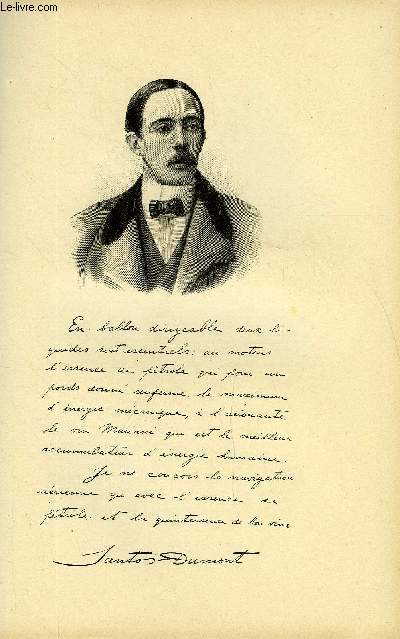 Le-livre.com
En ballon dirigeable deux li-
quides sont essentiels: au moteur
l'essence de pétrole qui pour un
poids donné renferme le maximum
d'énergie mécanique, à l'aéronaute
le vin Mariani qui est le meilleur
accumulateur d'énergie humaine.
Je ne conçois la navigation
aérienne qu'avec l'essence de
pétrole et la quintessence de bon vin.
Santos-Dumont